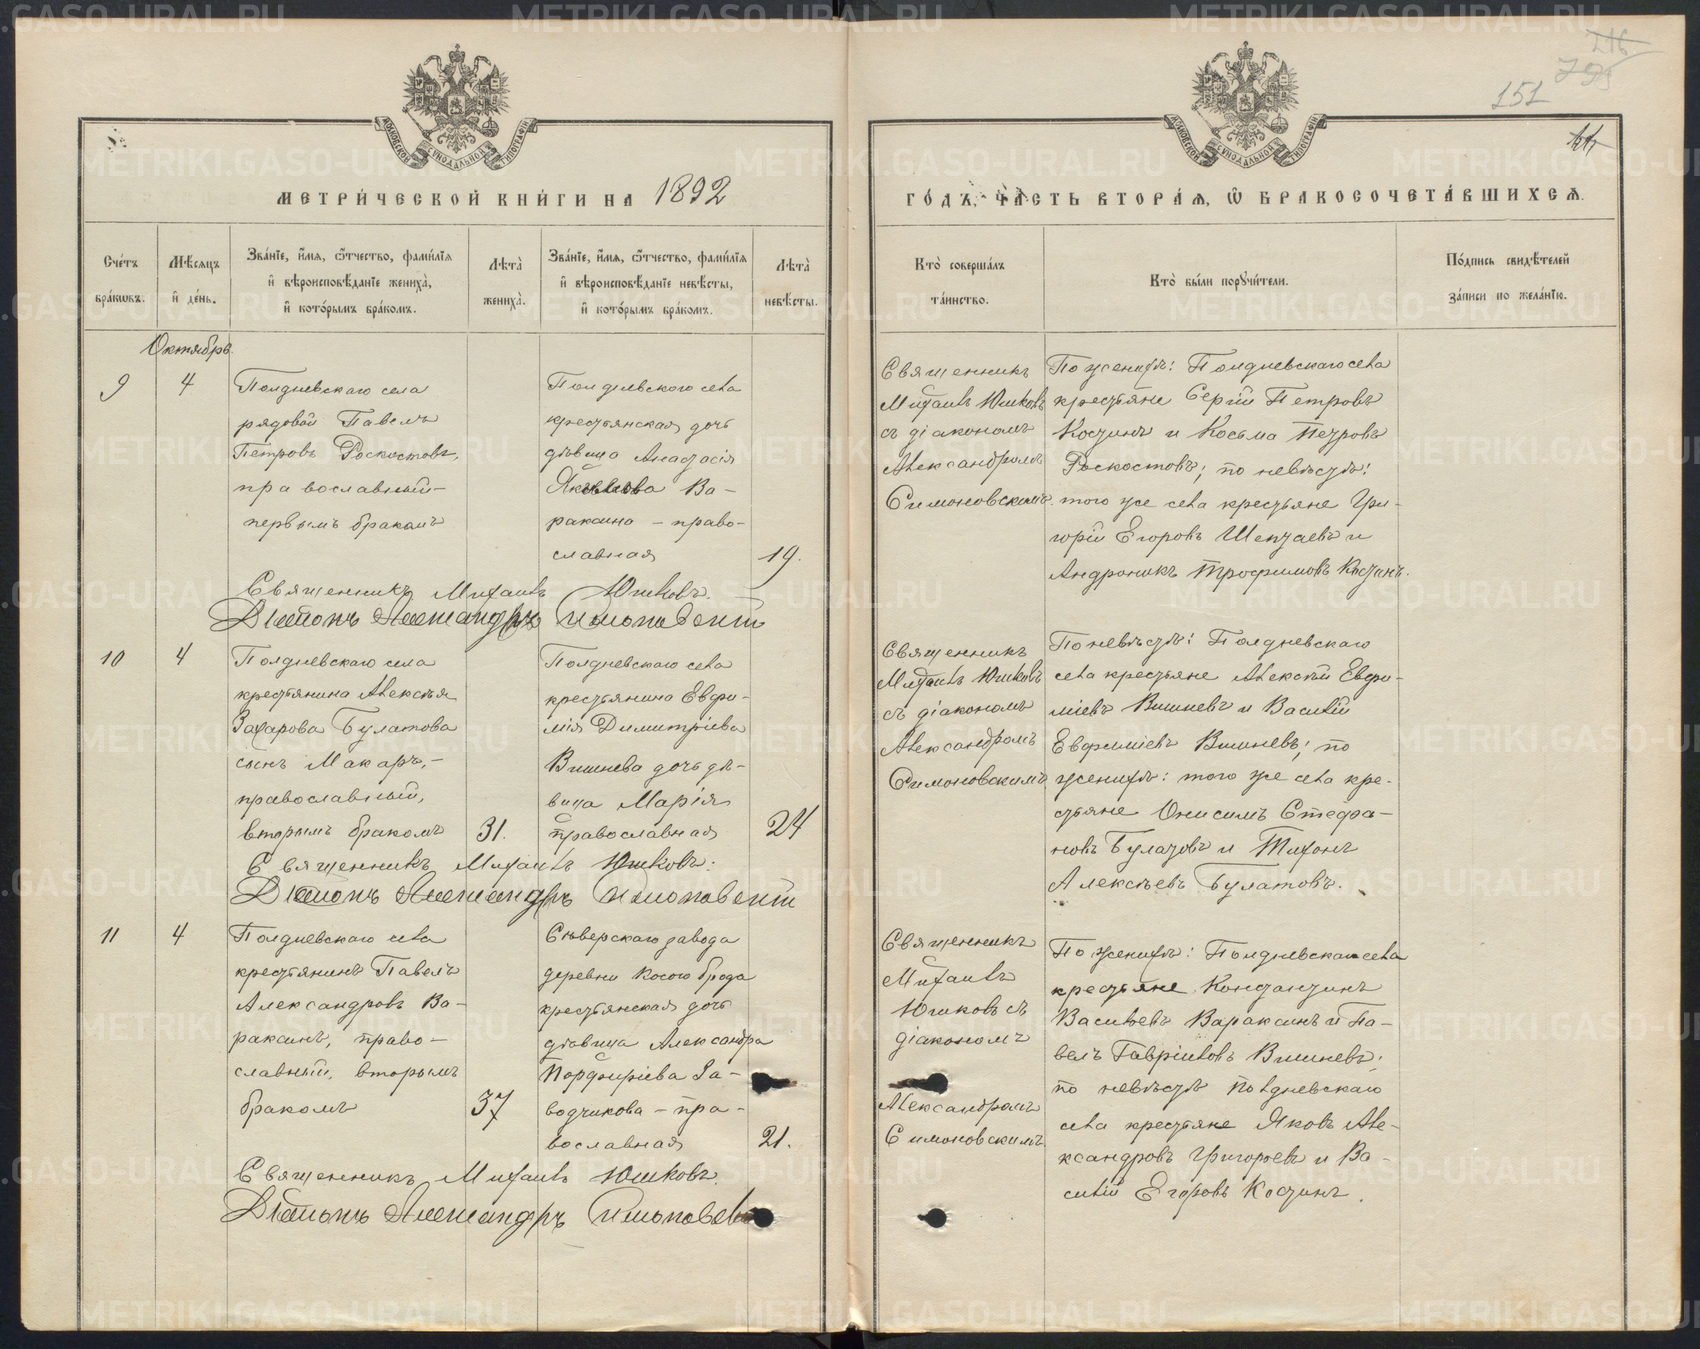 216
795
151
МЕТРИ́ЧЕСКОЙ КНИ́ГИ НА 1892
ГО́ДЪ, ЧА́СТЬ ВТОРА́Я, Ѿ БРАКОСОЧЕТА́ВШИХСЯ.
Сче́тъ бра́кѡвъ.
Мѣ́сяцъ и҆ де́нь.
Зва́нїе, и҆́мя, ѻ҆́тчество, фами́лїя
и҆ вѣроисповѣ́данїе жениха̀,
и҆ кото́рымъ бра́комъ.
Лѣта̀ жениха̀.
Зва́нїе, и҆́мя, ѻ҆́тчество, фами́лїя
и҆ вѣроисповѣ́данїе невѣ́сты,
и҆ кото́рымъ бра́комъ.
Лѣта̀ невѣ́сты.
Кто̀ соверша́лъ
та́инство.
Кто̀ бы́ли порꙋчи́тели.
По́дпись свидѣ́телей
за́писи по жела́нїю.
Октябрь
9
4
Полдневскаго села
рядовой Павелъ
Петровъ Роскостовъ,
православный –
первымъ бракомъ
Полдневскаго села
крестьянская дочь
дѣвица Анастасія
Яковлева Ва-
раксина – право-
славная
19.
Священникъ
Михаилъ Юшковъ
съ діакономъ
Александромъ
Симоновскимъ.
По женихѣ: Полдневскаго села
крестьяне Сергій Петровъ
Костинъ и Косьма Петровъ
Роскостовъ; по невѣстѣ:
того же села крестьяне Гри-
горій Егоровъ Шептаевъ и
Андроникъ Трофимовъ Костинъ.
Священникъ Михаилъ Юшковъ.
Діаконъ Александръ Симоновскій
10
4
Полдневскаго села
крестьянина Алексѣя
Захарова Булатова
сынъ Макаръ, –
православный,
вторымъ бракомъ
31.
Полдневскаго села
крестьянина Евфи-
мія Димитріева
Вишнева дочь дѣ-
вица Марія
православная
24
Священникъ
Михаилъ Юшковъ
съ діакономъ
Александромъ
Симоновскимъ
По невѣстѣ: Полдневскаго
села крестьяне Алексѣй Евфи-
міевъ Вишневъ и Василій
Евфиміевъ Вишневъ; по
женихѣ: того же села кре-
стьяне Онисимъ Стефа-
новъ Булатовъ и Тихонъ
Алексѣевъ Булатовъ.
Священникъ Михаилъ Юшковъ.
Діаконъ Александръ Симоновскій
11
4
Полдневскаго села
крестьянинъ Павелъ
Александровъ Ва-
раксинъ, право-
славный, вторымъ
бракомъ
37
Сѣверскаго завода
деревни Косого брода
крестьянская дочь
дѣвица Александра
Порфиріева За-
водчикова – пра-
вославная
21.
Священникъ
Михаилъ
Юшковъ съ
діакономъ
Александромъ
Симоновскимъ
По женихѣ: Полдневскаго села
крестьяне Константинъ
Васильевъ Вараксинъ и Па-
велъ Гавріиловъ Вишневъ;
по невѣстѣ Полдневскаго
села крестьяне Яковъ Але-
ксандровъ Григорьевъ и Ва-
силій Егоровъ Костинъ.
Священникъ Михаилъ Юшковъ.
Діаконъ Александръ Симоновскій